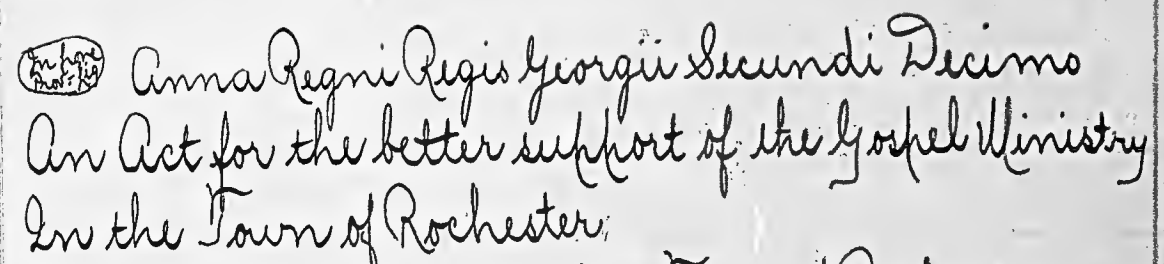 Anna Regni Regis Georgii Secundi Decimo
An Act for the better support of the Gospel Ministry
In the Town of Rochester,